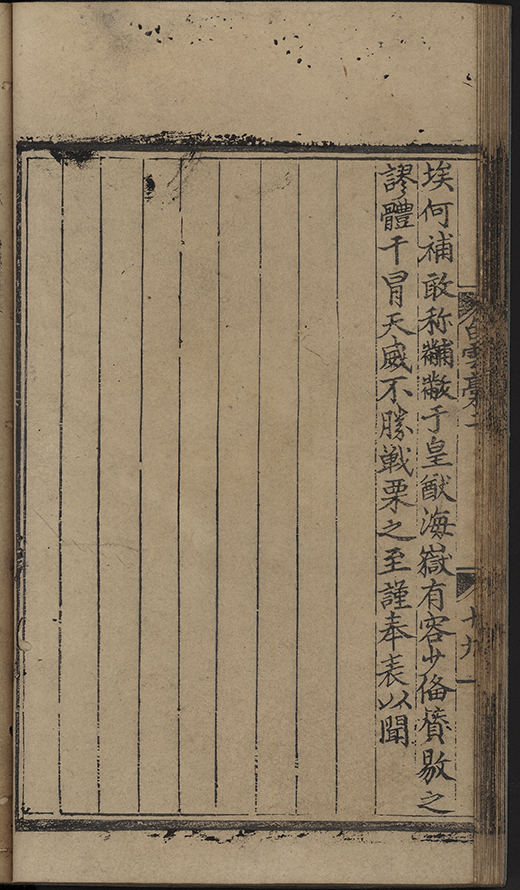 埃何補敢称黼黻于皇猷海嶽有容少俻賡敭之
謬體干冐天威不勝戦栗之至謹奉表以聞
白雲藁二
十九